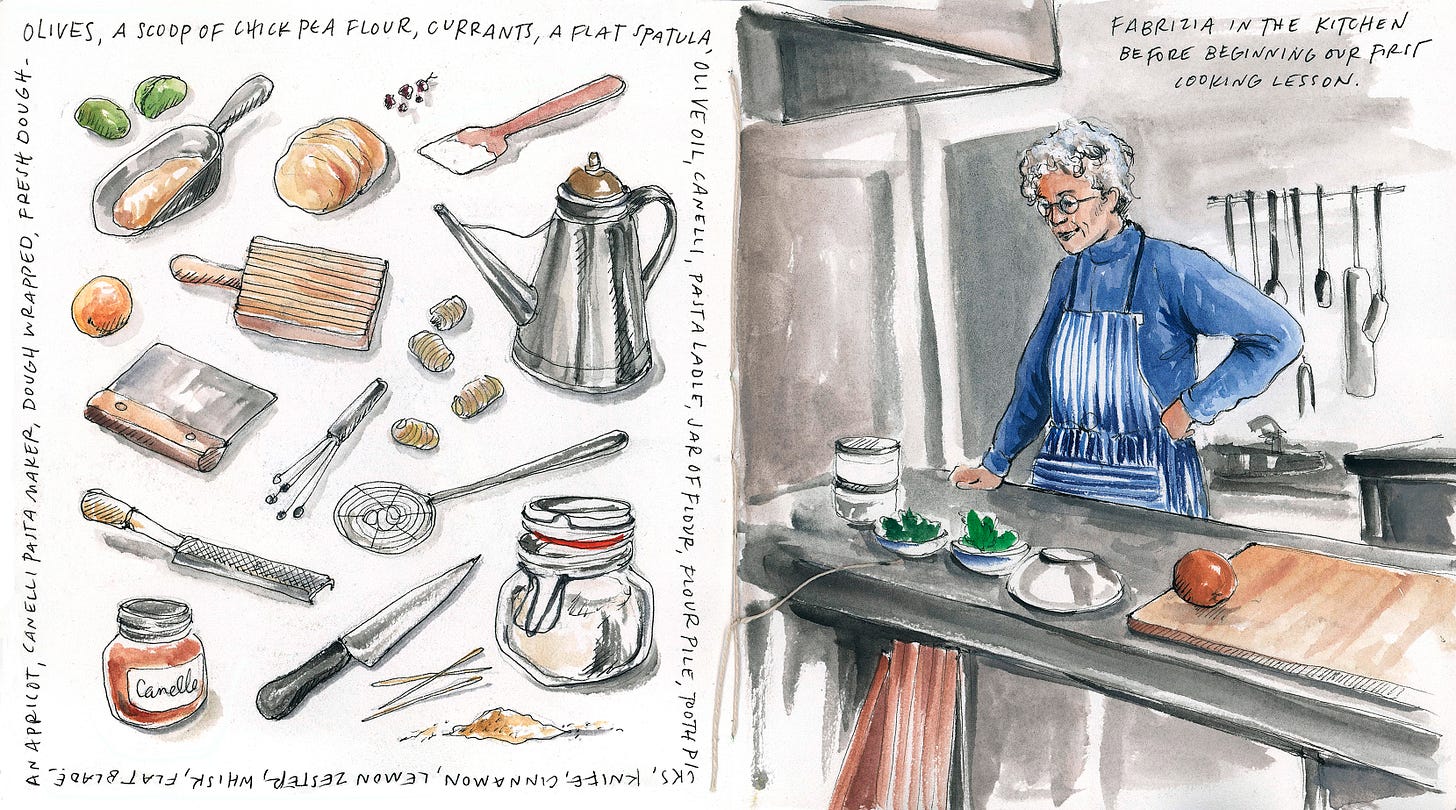 OLIVES, A SCOOP OF CHICK PEA FLOUR, CURRANTS, A FLAT SPATULA,
OLIVE OIL, CANELLI, PASTA LADLE, JAR OF FLOUR, FLOUR PILE, TOOTH PI
CKS, KNIFE, CINNAMON, LEMON ZESTER, WHISK, FLAT BLADE,
AN APRICOT, CANELLI PASTA MAKER, DOUGH WRAPPED, FRESH DOUGH-
Canelle
FABRIZIA IN THE KITCHEN
BEFORE BEGINNING OUR FIRST
COOKING LESSON.